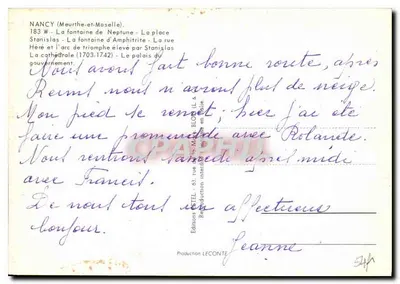 NANCY (Meurthe-et-Moselle).
183 W - La fontaine de Neptune - La place
Stanislas - La fontaine d'Amphitrite - La rue
Héré et l'arc de triomphe élevé par Stanislas
La cathédrale (1703-1742) - Le palais du
gouvernement.
Nous avons fait bonne route, après
Reims nous n'avons plus de neige.
Mon pied se remet, hier j'ai été
faire une promenade avec Rolande.
Nous rentrons samedi après midi
avec Francis.
De nous tous un affectueux
bonjour.
Jeanne
Production LECONTE
Editions ESTEL - 61, rue
Reproduction interdite
CPAPHIL